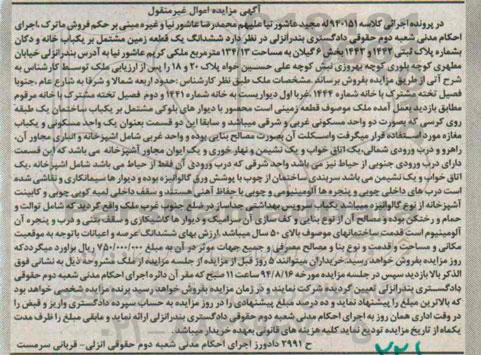 آگهی مزایده اموال غیرمنقول
در پرونده اجرائی کلاسه ۹۴۰۱۵۱ له مجید عاشورنیا علیهم محمدرضا عاشورنیا و غیره مبنی بر حکم فروش ماترک ، اجرای
احکام مدنی شعبه دوم حقوقی دادگستری بندرانزلی در نظر دارد ششدانگ یک قطعه زمین مشتمل بر یکباب خانه و دکان
بشماره پلاک ثبتی ۱۴۴۲ و ۱۴۴۳ بخش ۶ گیلان به مساحت ۱۳۴/۱۳ مترمربع ملکی کریم عاشور نیا به آدرس بندرانزلی خیابان
مطهری کوچه بلوری کوچه بهروزی نبش کوچه علی حسین خواه پلاک ۲۰ و ۱۸ را پس از ارزیابی ملک توسط کارشناس به
شرح آتی از طریق مزایده بفروش برساند. مشخصات ملک طبق نظر کارشناس :حدود اربعه شمالا و شرقا به شارع عام ،جنوبا
فصیل تخته مشترک با خانه شماره ۱۴۴۴ ،غربا اول دیواریست به خانه شماره ۱۴۴۱ و دوم فصیل تخته مشترک با خانه مرقوم
مطابق بازدید بعمل آمده ملک موصوف قطعه زمینی است محصور با دیوار های بلوکی مشتمل بر یکباب ساختمان یک طبقه
روی کرسی که بصورت دو واحد مسکونی غربی و شرقی میباشد و سابقا این دو قسمت بعنوان یک واحد مسکونی و یکباب
مغازه مورد استفاده قرار میگرفت واسکلت آن بصورت مصالح بنایی بوده و واحد غربی شامل آشپزخانه و انباری مجاور آن،
راهرو و درب ورودی شمالی،یک اتاق خواب و یک نشیمن و نهار خوری و یک ایوان مجاور آشپزخانه می باشد که این قسمت
دارای درب ورودی جنوبی از حیاط نیز می باشد واحد شرقی که درب ورودی آن فقط از حیاط می باشد شامل آشپزخانه ،یک
اتاق خواب و یک نشیمن می باشد سربندی ساختمان از چوب با پوشش ورق گالوانیزه بوده و دیوار ها سیمانکاری و نقاشی شده
است درب های داخلی چوبی و پنجره ها آلومینیومی و چوبی با حفاظ آهنی هستند و سقف داخلی لمبه کوبی چوبی و کابینت
آشپزخانه از نوع گالوانیزه میباشد یکباب سرویس بهداشتی جداساز در ضلع جنوب غرب ملک واقع گردید که شامل توالت و
حمام و رختکن بوده و مصالح آن از نوع بنایی و کف سازی آن سرامیک و دیوار ها کاشیکاری و سقف بتنی و درب و پنجره آن
آلومینیوم است قدمت ساختمانهای موصوف بالای ۵۰ سال میباشد. ارزش بهای ششدانگ عرصه و اعیانات باتوجه به موقعیت
مکانی و مساحت و قدمت و نوع بنا و مصالح مصرفی و جمیع جهات موثر در آن به مبلغ ۷۵۰/۰۰۰/۰۰۰ ریال برآورد میگردد که
روز مزایده بفروش خواهد رسید.خریداران میتوانند ۵ روز قبل از مزایده از جلسه مزایده از ملک مشروحه ذیل به نشانی فوق
الذکر بالا بازدید سپس در جلسه مزایده مورخه ۹۴/۸/۱۶ ساعت ۱۱ صبح که مقر آن دائره اجرای احکام مدنی شعبه دوم حقوقی
دادگستری بندرانزلی تعیین گردیده شرکت نمایند و در زمان مزایده بفروش خواهد رسید برنده مزایده شخصی خواهد بود
که بالاترین مبلغ را پیشنهاد نماید و ده درصد مبلغ پیشنهادی را در روز مزایده به حساب سپرده دادگستری واریز و قبض را
در وقت اداری همان روز به اجرای احکام مدنی شعبه دوم حقوقی دادگستری بندرانزلی ارائه نماید و مابقی مبلغ را ظرف مدت
یکماه از تاریخ مزایده تودیع نماید کلیه هزینه های قانونی بعهده خریدار میباشد.
ح ۲۹۹۱ دادورز اجرای احکام مدنی شعبه دوم حقوقی انزلی - قربانی سرمست